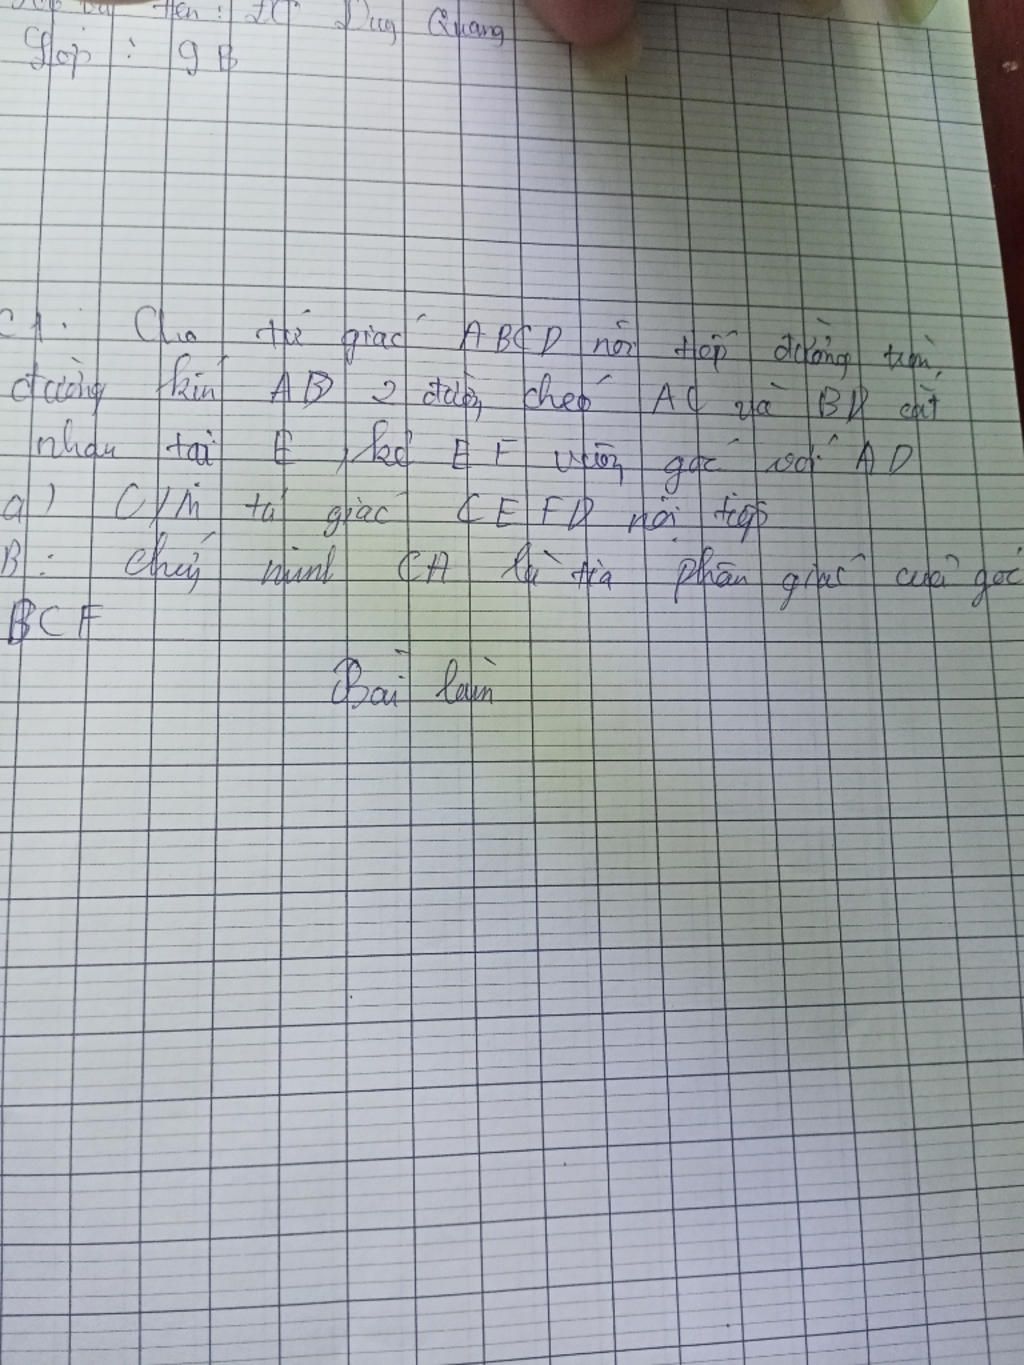 Duy Quang
Lớp : 9B
C1. Cho tứ giác ABCD nội tiếp đường tròn,
đường kín AD 2 đường cheó AC và BD cắt
nhau tại E, kẻ EF vuông góc với AD
a) C/M tứ giác CEFD nội tiếp
B: chứng minh CA là tia phân giác của góc
BCF
Bài làm